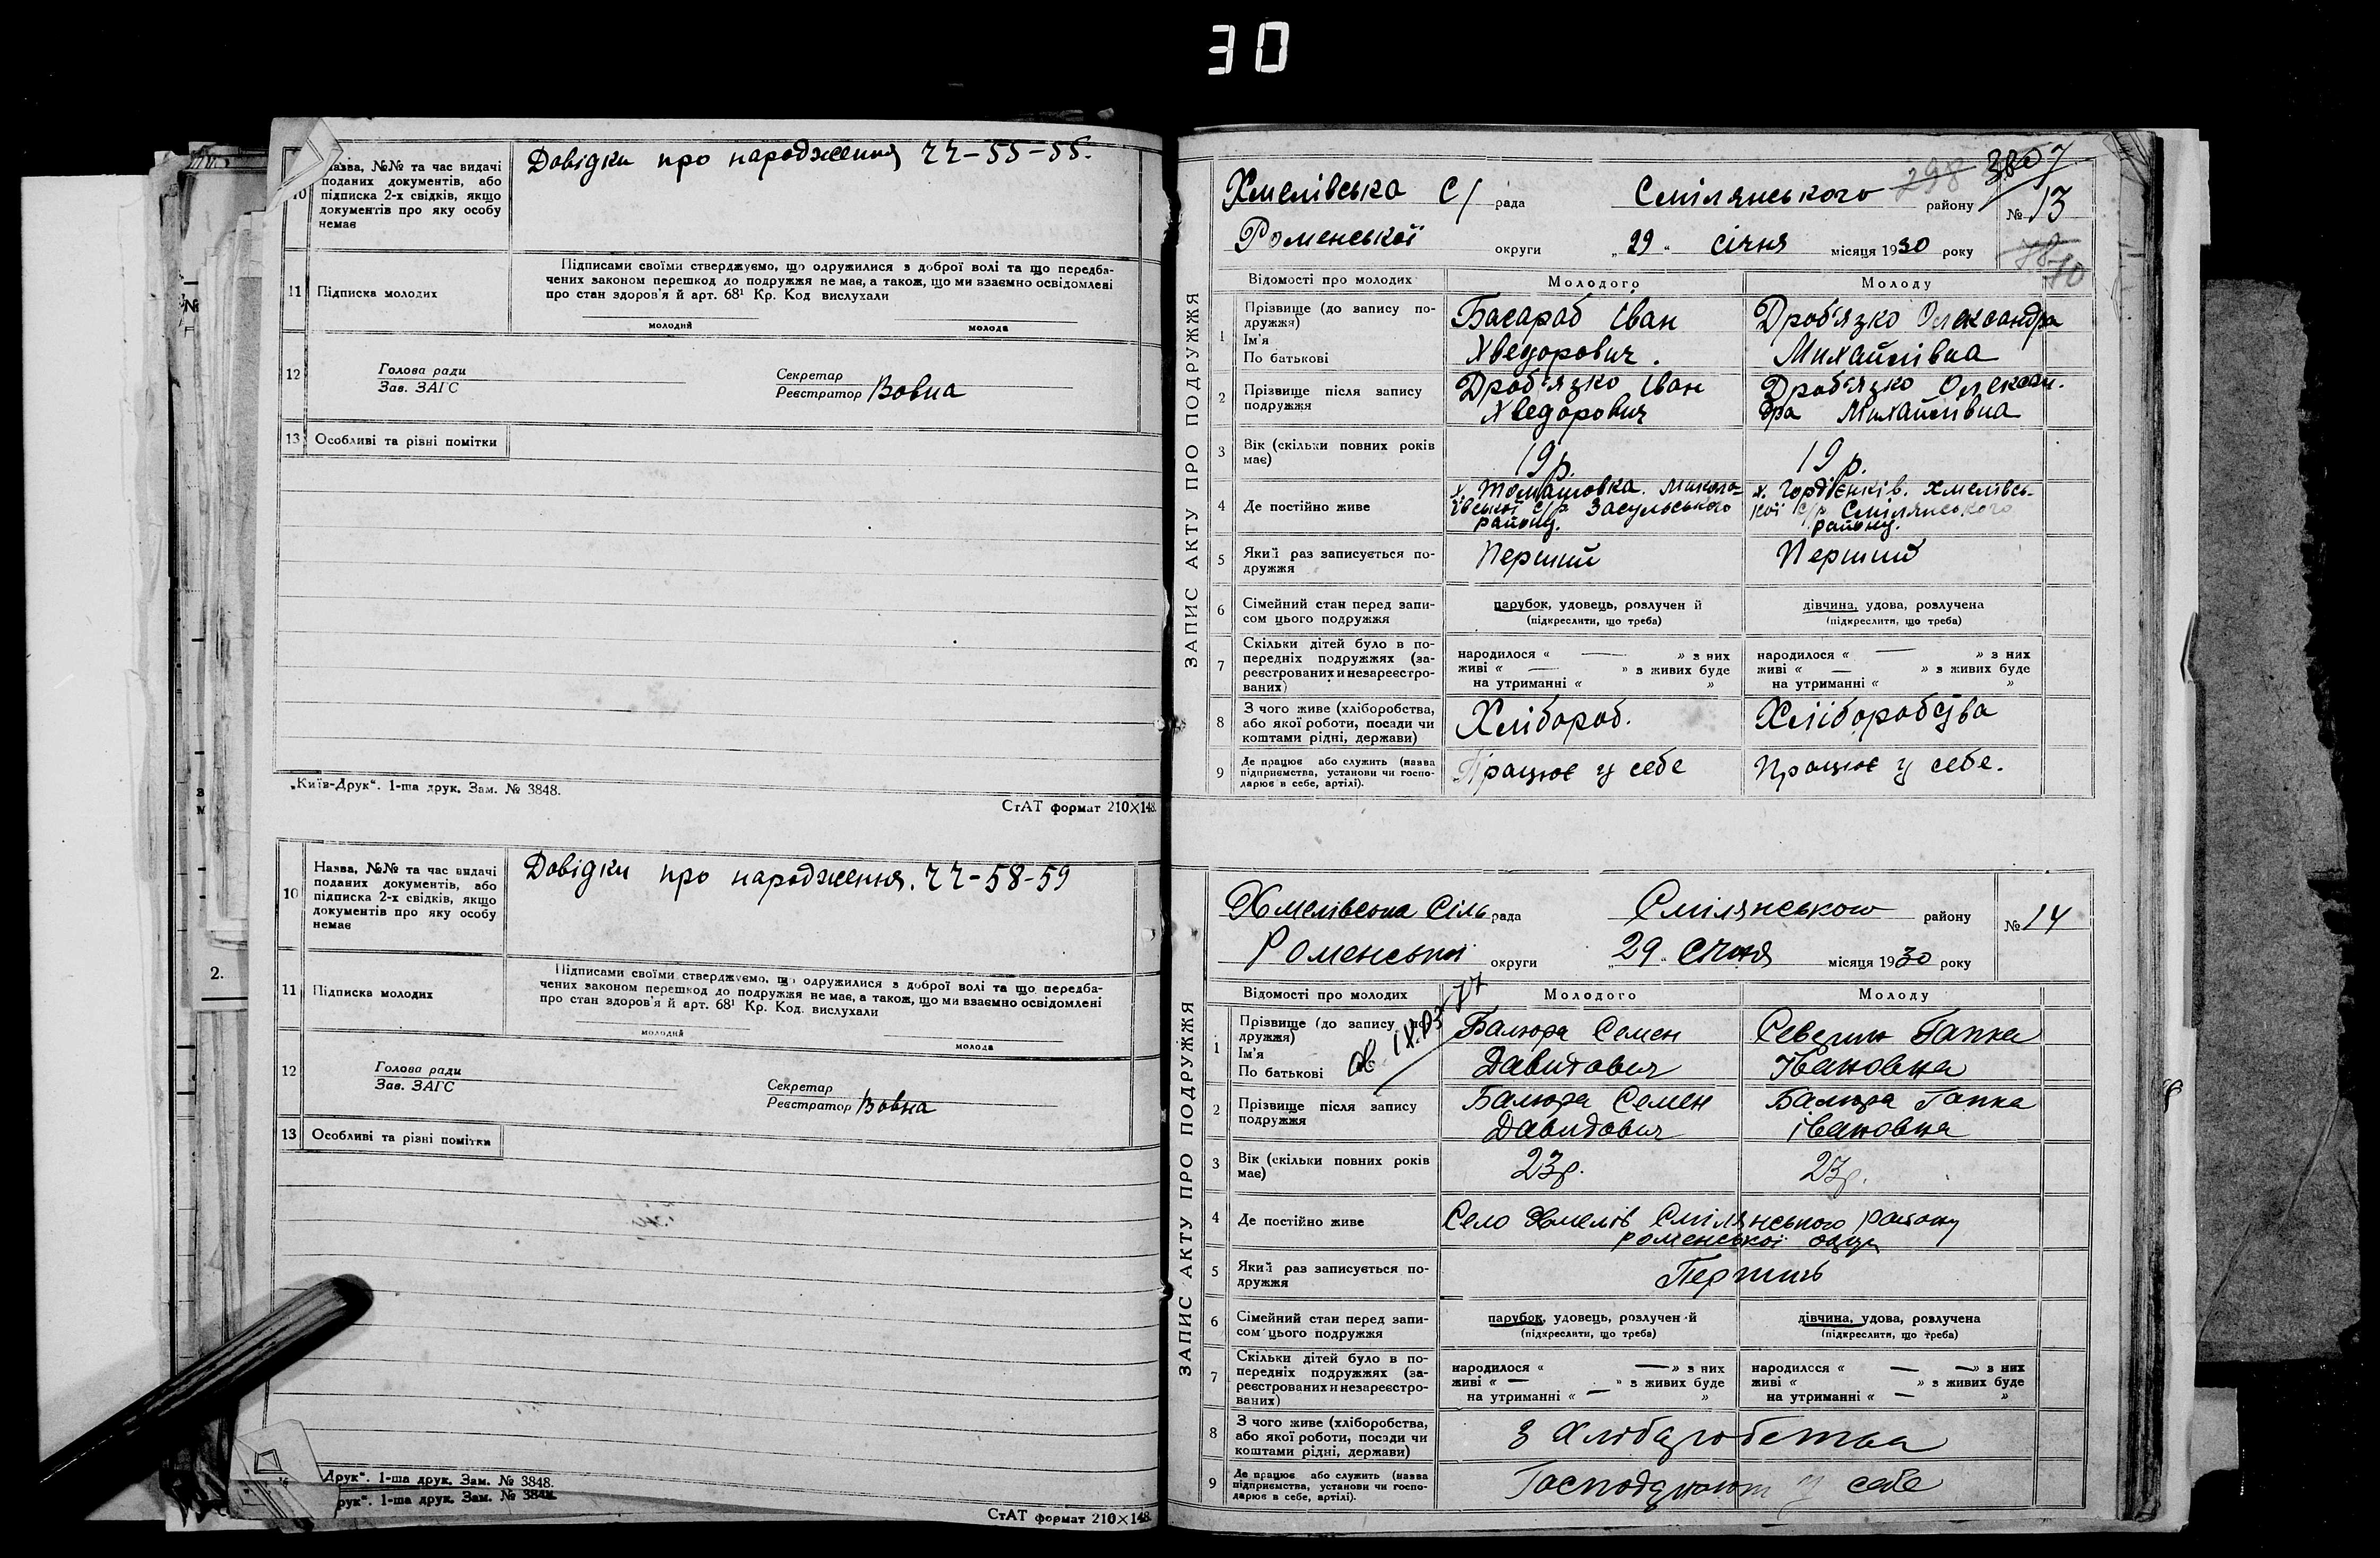 30
10 Назва, №№ та час видачі
поданих документів, або
підписка 2-х свідків, якщо
документів про яку особу
немає
Довідки про народження чч-55-55.
11 Підписка молодих
Підписами своїми стверджуємо, що одружилися з доброї волі та що передба-
чених законом перешкод до подружжя не має, а також, що ми взаємно освідомлені
про стан здоров'я й арт. 68¹ Кр. Код вислухали
молодий молода
12 Голова ради
Зав. ЗАГС
Секретар
Реєстратор Вовна
13 Особливі та різні помітки
„Київ-Друк“. 1-ша друк. Зам. № 3848.
СтАТ формат 210×148.
10 Назва, №№ та час видачі
поданих документів, або
підписка 2-х свідків, якщо
документів про яку особу
немає
Довідки про народження. чч-58-59
11 Підписка молодих
Підписами своїми стверджуємо, що одружилися з доброї волі та що передба-
чених законом перешкод до подружжя не має, а також, що ми взаємно освідомлені
про стан здоров'я й арт. 68¹ Кр. Код. вислухали
молодий молода
12 Голова ради
Зав. ЗАГС
Секретар
Реєстратор Вовна
13 Особливі та різні помітки
Друк“. 1-ша друк. Зам. № 3848.
рук“. 1-ша друк. Зам. № 3848.
СтАТ формат 210×148.
2.
ЗАПИС АКТУ ПРО ПОДРУЖЖЯ
298 3807
Хмелівська С/ рада Смілянського району № 13
Роменської округи „29“ січня місяця 1930 року
78 70
Відомості про молодих Молодого Молоду
1 Прізвище (до запису по-
дружжя)
Ім'я
По батькові
Басараб Іван
Хведорович.
Дроб'язко Олександра
Михайлівна
2 Прізвище після запису
подружжя
Дроб'язко Іван
Хведорович
Дроб'язко Олексан-
дра Михайлівна
3 Вік (скільки повних років
має)
19 р.
19 р.
4 Де постійно живе
х. Томашовка. Микола-
ївської с/р Засульського
району.
х. Гордієнків. Хмелівсь-
кої с/р Смілянського
району.
5 Який раз записується по-
дружжя
Перший
Перший
6 Сімейний стан перед запи-
сом цього подружжя
парубок, удовець, розлучений
(підкреслити, що треба)
дівчина, удова, розлучена
(підкреслити, що треба)
7 Скільки дітей було в по-
передніх подружжях (за-
реєстрованих и незареєстро-
ваних)
народилося « — » з них
живі « — » з живих буде
на утриманні « »
народилося « — » з них
живі « — » з живих буде
на утриманні « »
8 З чого живе (хліборобства,
або якої роботи, посади чи
коштами рідні, держави)
Хлібороб.
Хліборобства
9 Де працює або служить (назва
підприємства, установи чи госпо-
дарює в себе, артілі).
Працює у себе
Працює у себе.
ЗАПИС АКТУ ПРО ПОДРУЖЖЯ
Хмелівська Сіль рада Смілянського району № 14
Роменської округи „29“ січня місяця 1930 року
Відомості про молодих Молодого Молоду
1 Прізвище (до запису по-
дружжя)
Ім'я
По батькові
Балюра Семен
Давидович
Северин Гапка
Івановна
2 Прізвище після запису
подружжя
Балюра Семен
Давидович
Балюра Гапка
Івановна
3 Вік (скільки повних років
має)
23 р.
23 р.
4 Де постійно живе
Село Хмелів Смілянського району
роменської
5 Який раз записується по-
дружжя
Першиь
6 Сімейний стан перед запи-
сом цього подружжя
парубок, удовець, розлучен й
(підкреслити, що треба)
дівчина, удова, розлучена
(підкреслити, що треба)
7 Скільки дітей було в по-
передніх подружжях (за-
реєстрованих и незареєстро-
ваних)
народилося « — » з них
живі « — » з живих буде
на утриманні « — »
народилося « — — » з них
живі « » з живих буде
на утриманні « — »
8 З чого живе (хліборобства,
або якої роботи, посади чи
коштами рідні, держави)
З хліборобства
9 Де працює або служить (назва
підприємства, установи чи госпо-
дарює в себе, артілі).
Господрюют у себе